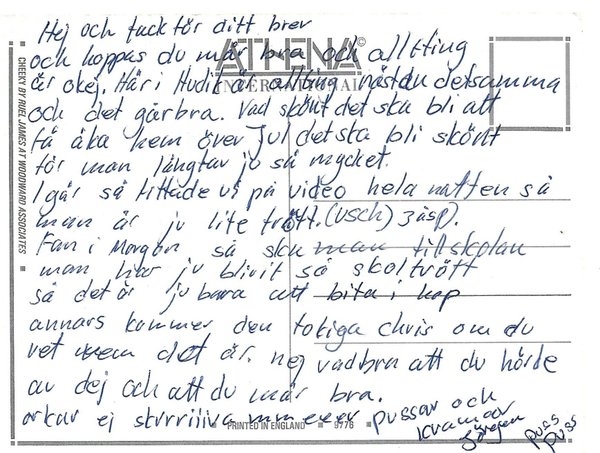 Hej och tack för ditt brev
och hoppas du mår bra och alltting
är okej. Här i Hudik är allting nästan detsamma
och det går bra. Vad skönt det ska bli att
få åka hem över jul det ska bli skönt
för man längtar ju så mycket.
Igår så tittade vi på video hela natten så
man är ju lite trött. (USCH) 3 äsp).
Fan i Morgon så ska man till skolan
man har ju blivit så skoltrött
så det är ju bara att bita i hop
annars kommer den tokiga chris om du
vet vem det är. nej vad bra att du hörde
av dej och att du mår bra.
orkar ej skrrriiiva mmeeerr pussar och
kramar
Jörgen
puss
puss
ATHENA
INTERNATIONAL
CHEEKY BY RUEL JAMES AT WOODWARD ASSOCIATES
PRINTED IN ENGLAND 9776